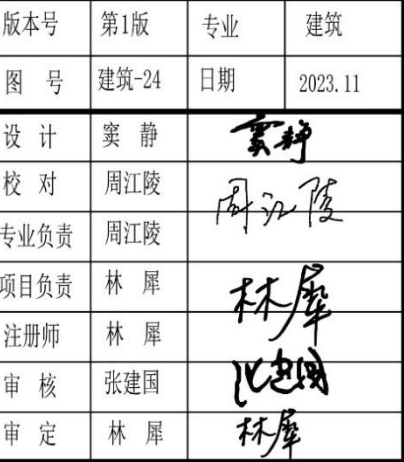 版本号 第1版 专业 建筑
图 号 建筑-24 日期 2023.11
设 计 窦 静 窦静
校 对 周江陵 周江陵
专业负责 周江陵
项目负责 林 犀 林犀
注册师 林 犀
审 核 张建国
审 定 林 犀 林犀